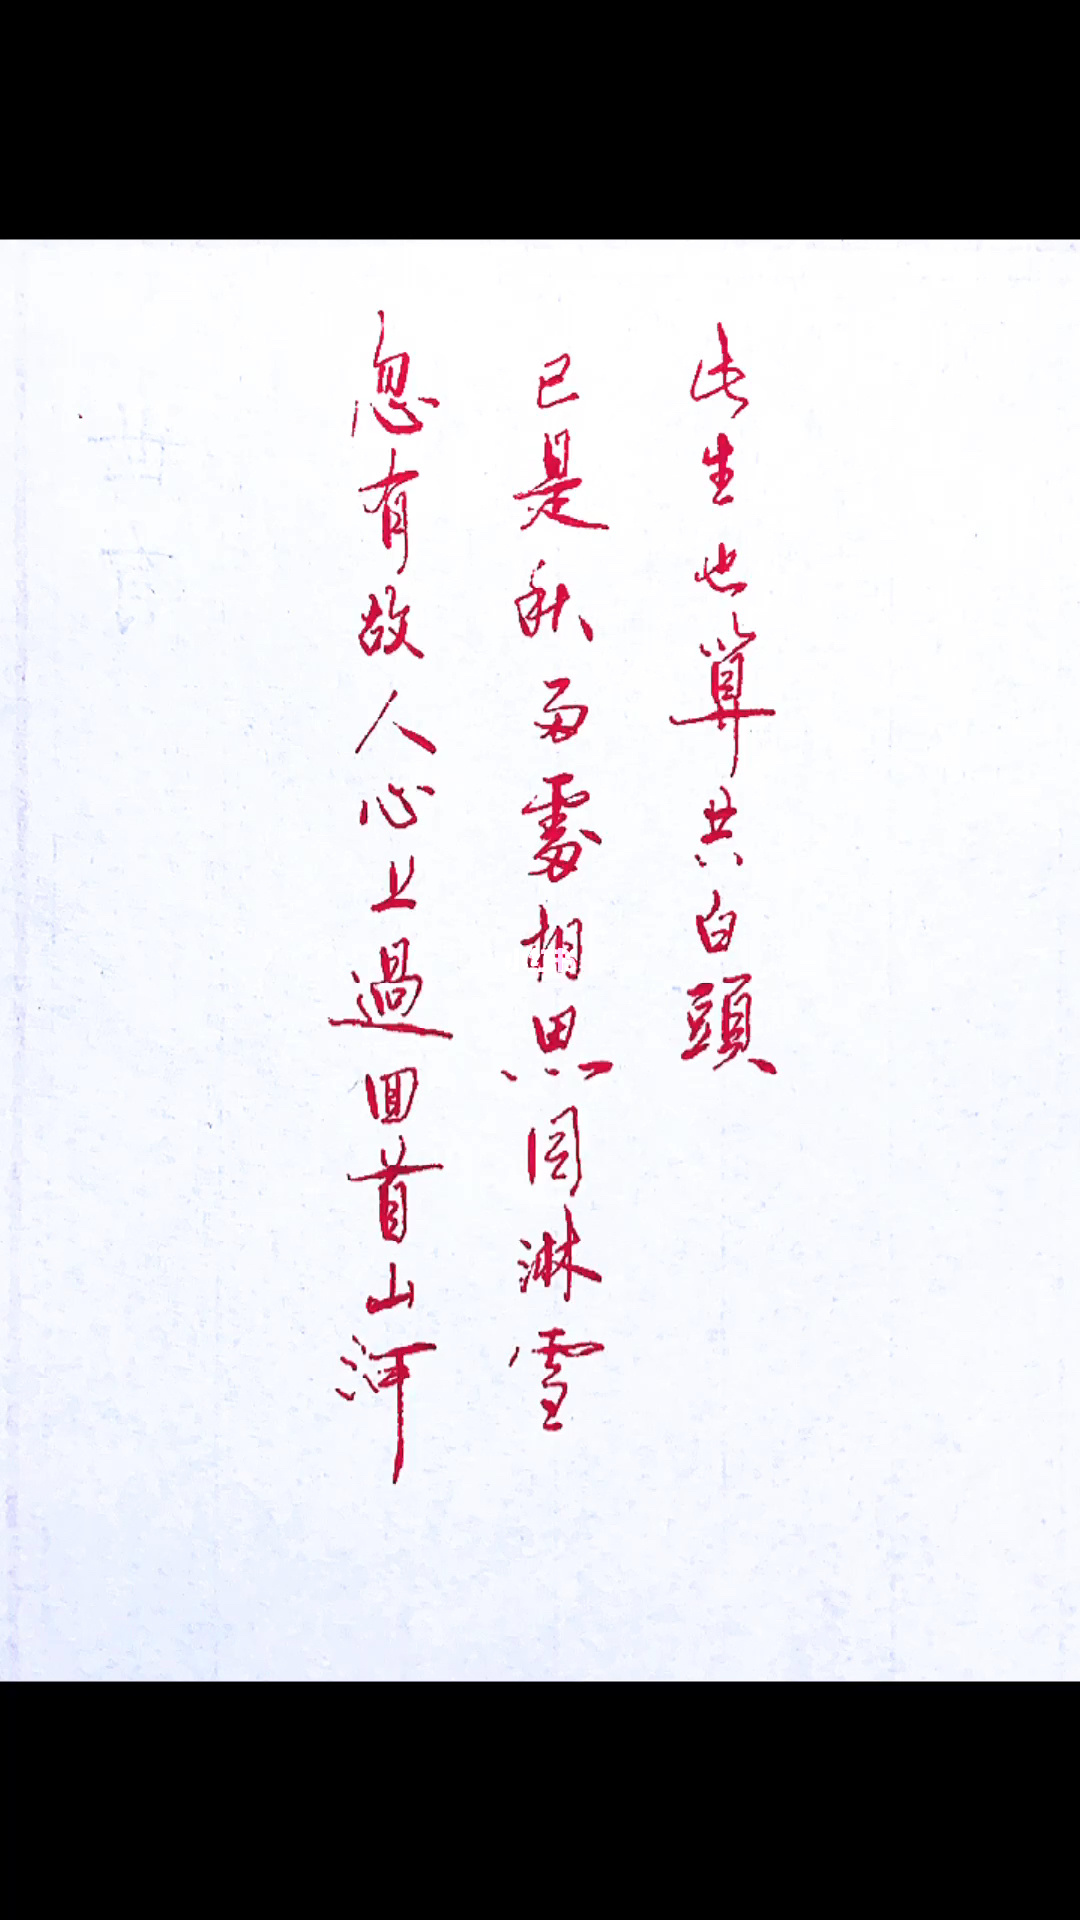 忽有故人心上過回首山河
已是秋两處相思同淋雪
此生也算共白頭